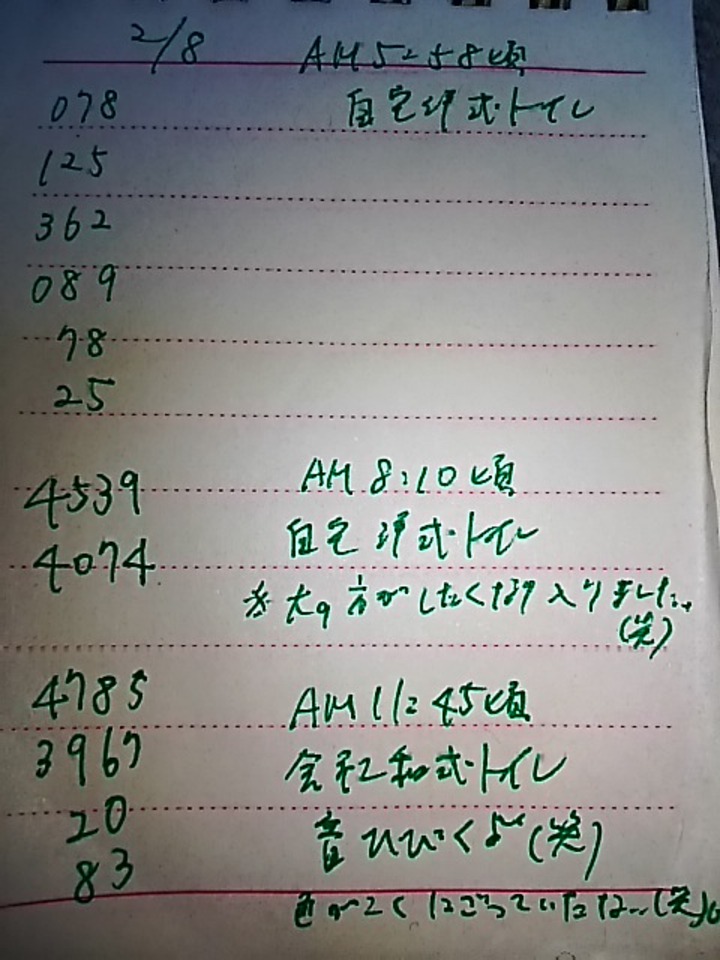 2/8 AM5:58頃
078 自宅洋式トイレ
125
362
089
78
25
4539 AM8:10頃
4074 自宅洋式トイレ
大の方がしたくなり入りました。
(笑)
4785 AM11:45頃
3967 会社和式トイレ
20 音ひびくよ(笑)
83
色がこくにごっていたな…(笑)